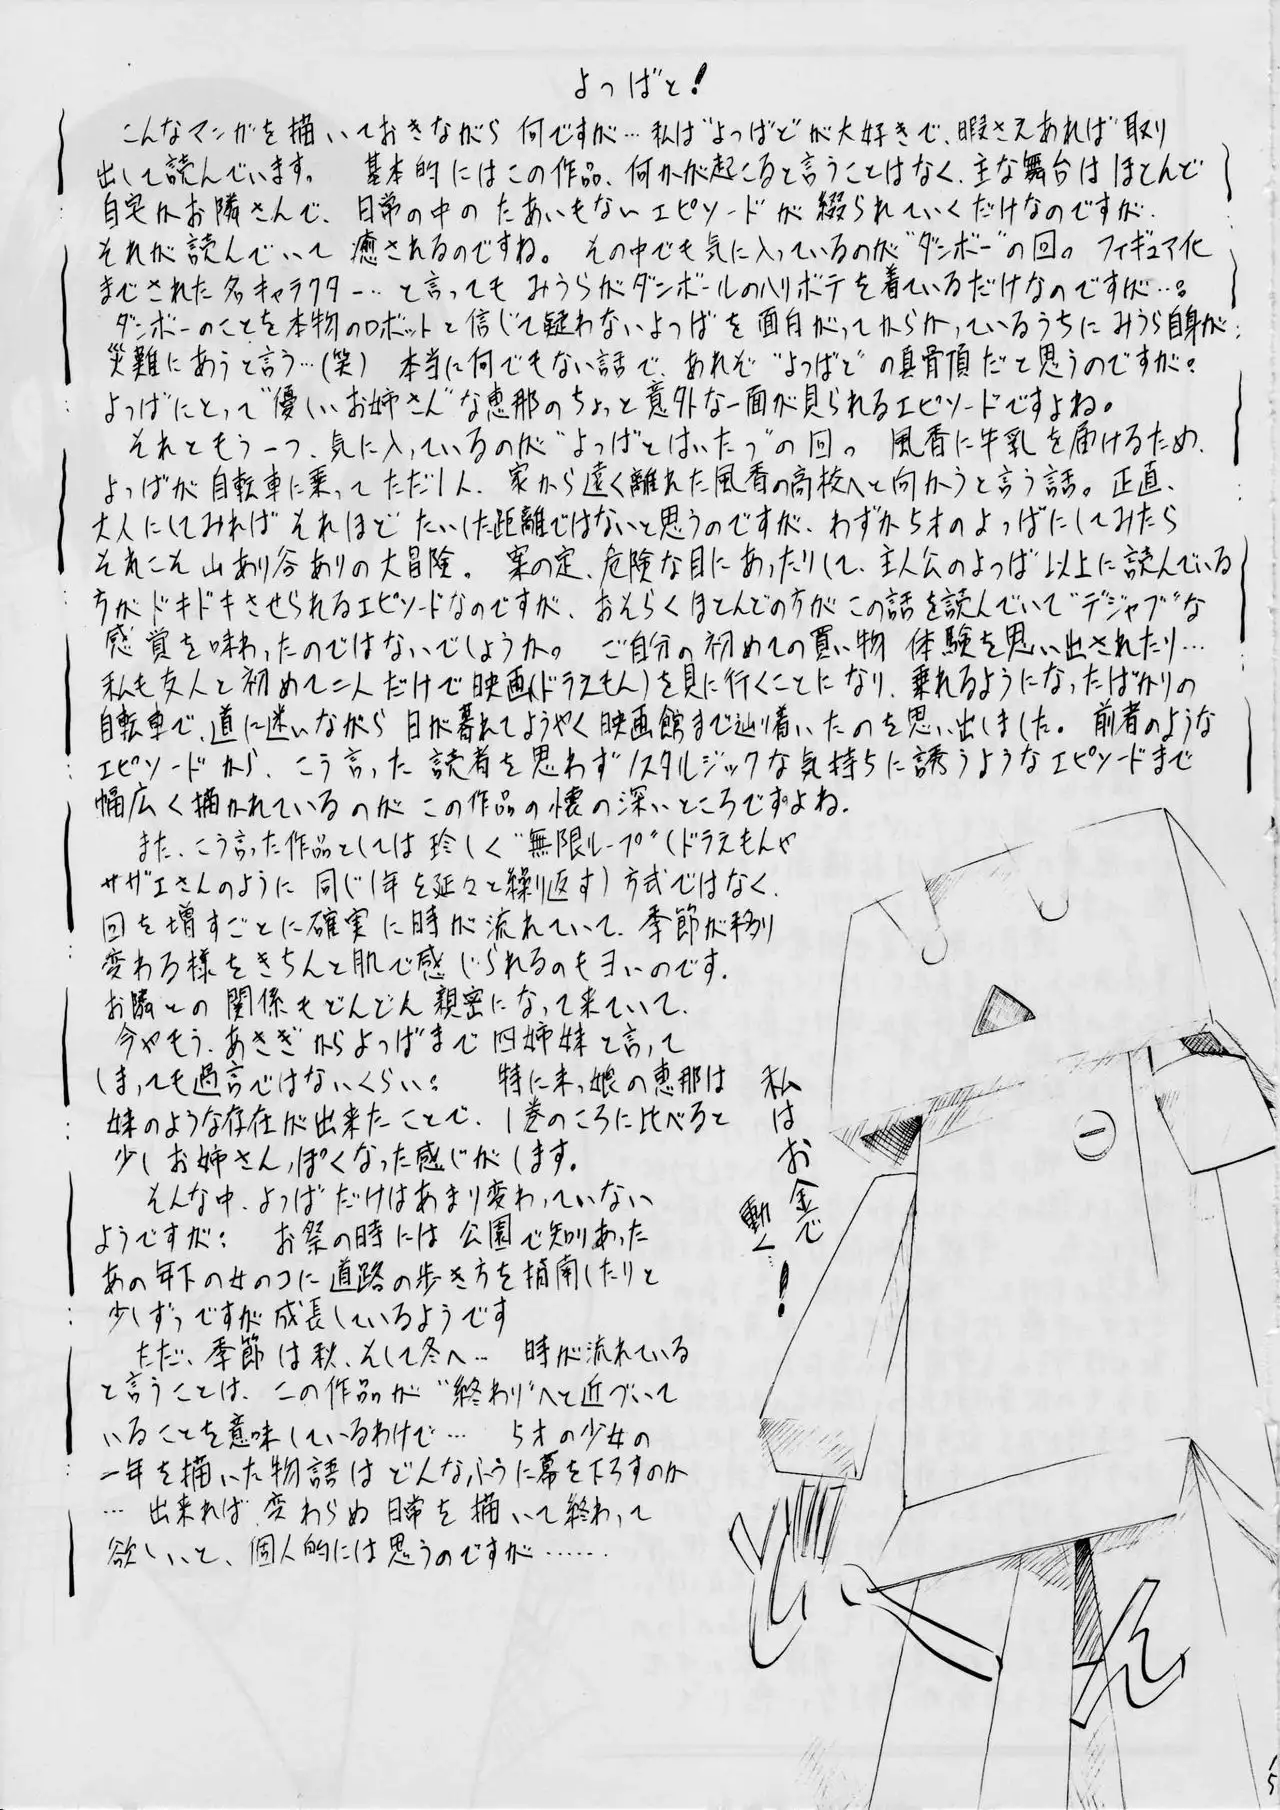 よつばと!
こんなマンガを描いておきながら何ですが…私は"よつばと"が大好きで、暇さえあれば取り
出して読んでいます。 基本的にはこの作品、何かが起こると言うことはなく、主な舞台はほとんど
自宅かお隣さんで、日常の中のたあいもないエピソードが綴られていくだけなのですが、
それが読んでいて癒されるのですね。 その中でも気に入っているのが"ダンボー"の回。フィギュア化
までされた名キャラクター…と言ってもみうらがダンボールのハリボテを着ているだけなのですが…。
ダンボーのことを本物のロボットと信じて疑わないよつばを面白がってからかっているうちにみうら自身が
災難にあうと言う…(笑) 本当に何でもない話で、あれぞ"よつばと"の真骨頂だと思うのですが。
よつばにとって"優しいお姉さん"な恵那のちょっと意外な一面が見られるエピソードですよね。
それともう一つ、気に入っているのが"よつばとはいたつ"の回。 風香に牛乳を届けるため、
よつばが自転車に乗ってただ1人、家から遠く離れた風香の高校へと向かうと言う話。正直、
大人にしてみればそれほどたいした距離ではないと思うのですが、わずか5才のよつばにしてみたら
それこそ山あり谷ありの大冒険。 案の定、危険な目にあったりして、主人公のよつば以上に読んでいる
方がドキドキさせられるエピソードなのですが、おそらくほとんどの方がこの話を読んでいて"デジャブ"な
感覚を味わったのではないでしょうか。 ご自分の初めての買い物体験を思い出されたり…
私も友人と初めて二人だけで映画(ドラえもん)を見に行くことになり、乗れるようになったばかりの
自転車で、道に迷いながら日が暮れてようやく映画館まで辿り着いたのを思い出しました。 前者のような
エピソードから、こう言った読者を思わずノスタルジックな気持ちに誘うようなエピソードまで
幅広く描かれているのがこの作品の懐の深いところですよね。
また、こう言った作品としては珍しく"無限ループ"(ドラえもんや
サザエさんのように同じ1年を延々と繰り返す)方式ではなく、
回を増すごとに確実に時が流れていて、季節が移り
変わる様をきちんと肌で感じられるのもヨいのです。
お隣との関係もどんどん親密になって来ていて、
今やもう、あさぎからよつばまで四姉妹と言って
しまっても過言ではないくらい。 特に末っ娘の恵那は
妹のような存在が出来たことで、1巻のころに比べると
少しお姉さんっぽくなった感じがします。
そんな中、よつばだけはあまり変わっていない
ようですが。 お祭の時には公園で知りあった
あの年下の女のコに道路の歩き方を指南したりと
少しずつですが成長しているようです
ただ、季節は秋、そして冬へ… 時が流れている
と言うことは、この作品が"終わり"へと近づいて
いることを意味しているわけで… 5才の少女の
一年を描いた物語はどんなふうに幕を下ろすのか
…出来れば変わらぬ日常を描いて終わって
欲しいと、個人的には思うのですが……
私はお金で
動く…!
15